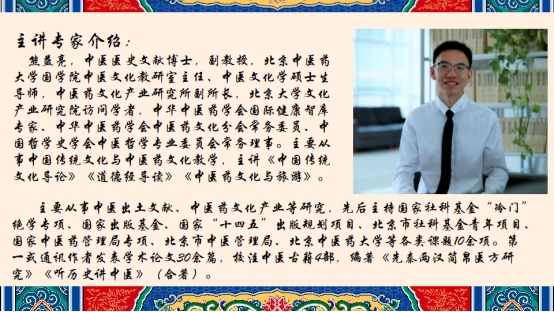 主讲专家介绍：
熊益亮，中医医史文献博士，副教授，北京中医药
大学国学院中医文化教研室主任、中医文化学硕士生
导师，中医药文化产业研究所副所长，北京大学文化
产业研究院访问学者，中华中医药学会国际健康智库
专家、中华中医药学会中医药文化分会常务委员、中
国哲学史学会中医哲学专业委员会常务理事。主要从
事中国传统文化与中医药文化教学，主讲《中国传统
文化导论》《道德经导读》《中医药文化与旅游》。
主要从事中医出土文献、中医药文化产业等研究，先后主持国家社科基金“冷门”
绝学专项、国家出版基金、国家“十四五”出版规划项目、北京市社科基金青年项目、
国家中医药管理局专项、北京市中医管理局、北京中医药大学等各类课题10余项。第
一或通讯作者发表学术论文30余篇，校注中医古籍4部，编著《先秦两汉简帛医方研
究》《听历史讲中医》（合著）。